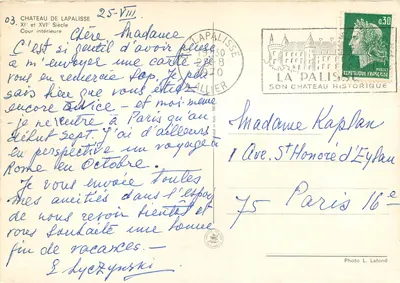 03. CHATEAU DE LAPALISSE
XIe et XVIe Siècle
Cour intérieure
25-VIII
Chère Madame
C'est si gentil d'avoir pensé
à m'envoyer une carte - je
vous en remercie bcp. Je pen-
sais hier que vous étiez
encore - et moi-même
- je ne rentre à Paris qu'au
début Sept. J'ai d'ailleurs
en perspective un voyage à
Rome en Octobre.
Je vous envoie toutes
mes amitiés dans l'espoir
de vous revoir bientôt et
vous souhaite une bonne
fin de vacances -
E Lyczynski
LAPALISSE
ALLIER
LA PALISSE
SON CHATEAU HISTORIQUE
0,30
REPUBLIQUE FRANÇAISE
Madame Kaplan
1 Ave. St Honoré d'Eylau
75 Paris 16e
Photo L. Lafond